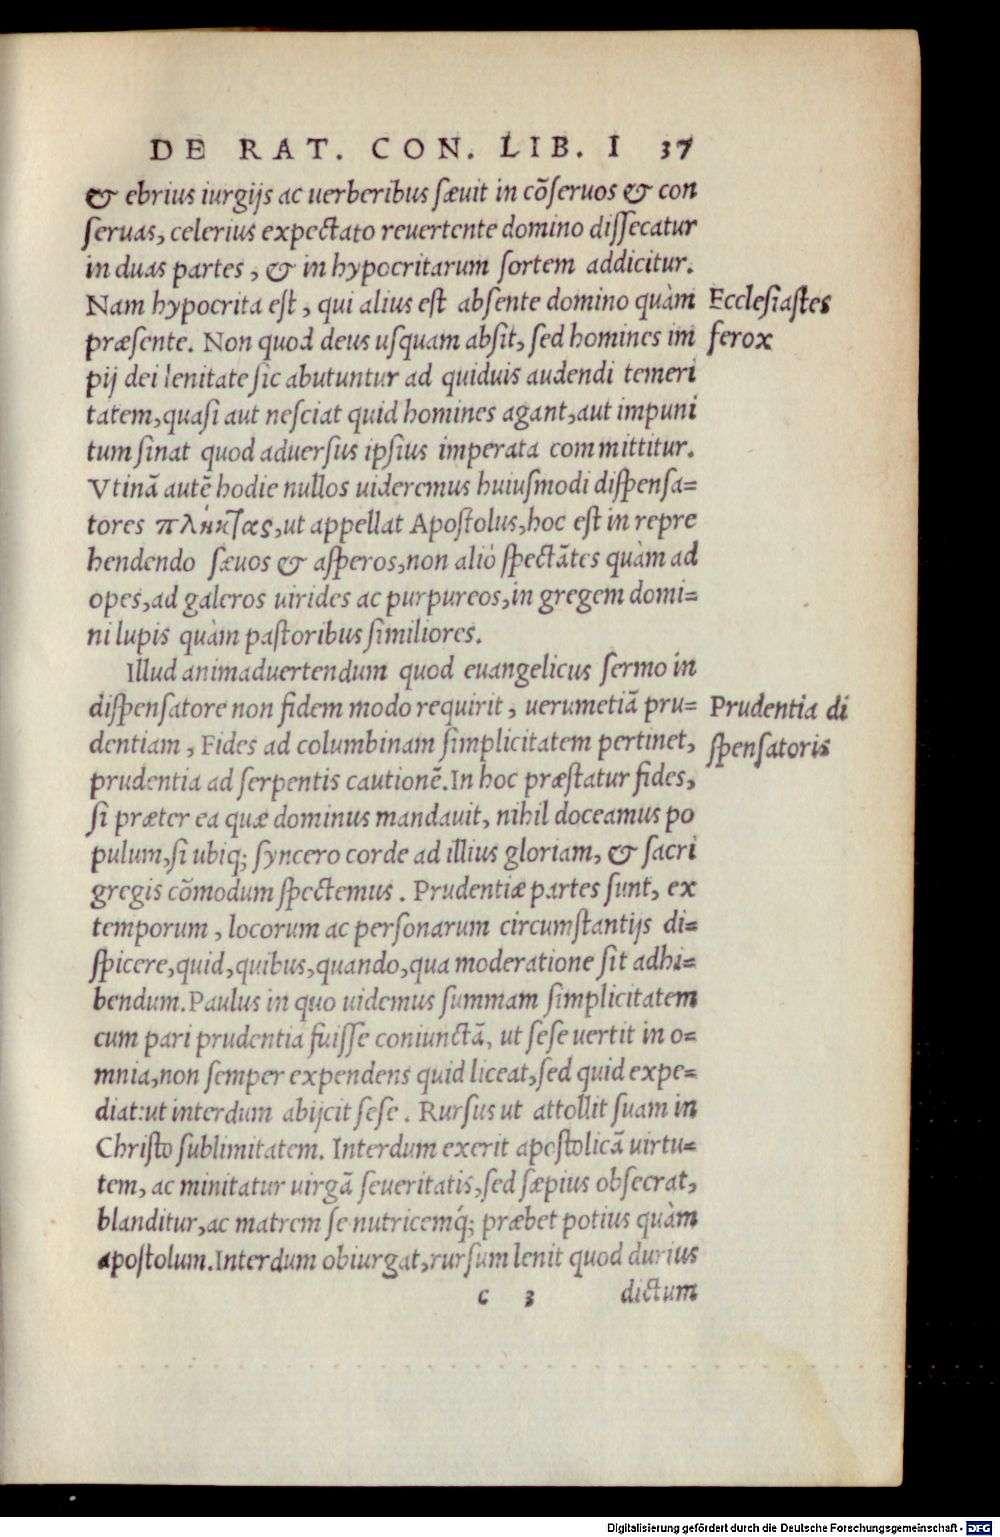 DE RAT. CON. LIB. I 37
& ebrius iurgijs ac uerberibus sæuit in cõseruos & con
seruas, celerius expectato reuertente domino dissecatur
in duas partes, & in hypocritarum sortem addicitur.
Nam hypocrita est, qui alius est absente domino quàm
præsente. Non quod deus usquam absit, sed homines im
pij dei lenitate sic abutuntur ad quiduis audendi temeri
tatem, quasi aut nesciat quid homines agant, aut impuni
tum sinat quod aduersus ipsius imperata committitur.
Vtinã autẽ hodie nullos uideremus huiusmodi dispensa=
tores πλήκτας, ut appellat Apostolus, hoc est in repre
hendendo sæuos & asperos, non aliò spectãtes quàm ad
opes, ad galeros uirides ac purpureos, in gregem domi=
ni lupis quàm pastoribus similiores.
Illud animaduertendum quod euangelicus sermo in
dispensatore non fidem modo requirit, uerumetiã pru=
dentiam, Fides ad columbinam simplicitatem pertinet,
prudentia ad serpentis cautionẽ. In hoc præstatur fides,
si præter ea quæ dominus mandauit, nihil doceamus po
pulum, si ubiq; syncero corde ad illius gloriam, & sacri
gregis cõmodum spectemus. Prudentiæ partes sunt, ex
temporum, locorum ac personarum circumstantijs di=
spicere, quid, quibus, quando, qua moderatione sit adhi=
bendum. Paulus in quo uidemus summam simplicitatem
cum pari prudentia fuisse coniunctã, ut sese uertit in o=
mnia, non semper expendens quid liceat, sed quid expe=
diat: ut interdum abijcit sese. Rursus ut attollit suam in
Christo sublimitatem. Interdum exerit apostolicã uirtu=
tem, ac minitatur uirgã seueritatis, sed sæpius obsecrat,
blanditur, ac matrem se nutricemq́; præbet potius quàm
apostolum. Interdum obiurgat, rursum lenit quod durius
c 3 dictum
Ecclesiastes
ferox
Prudentia di
spensatoris
Digitalisierung gefördert durch die Deutsche Forschungsgemeinschaft - DFG